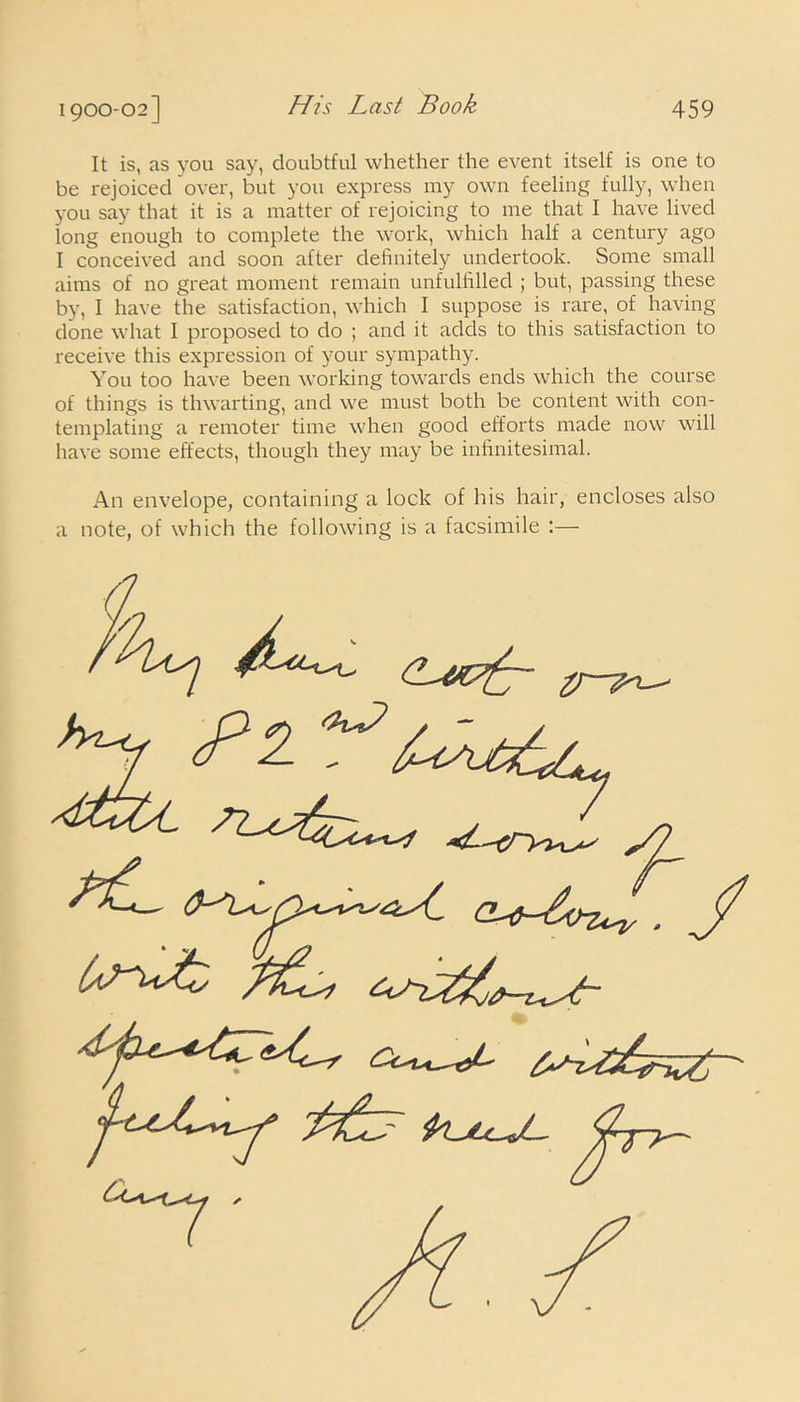 1900-02] His Last Book 459
It is, as you say, doubtful whether the event itself is one to
be rejoiced over, but you express my own feeling fully, when
you say that it is a matter of rejoicing to me that I have lived
long enough to complete the work, which half a century ago
I conceived and soon after definitely undertook. Some small
aims of no great moment remain unfulfilled ; but, passing these
by, I have the satisfaction, which I suppose is rare, of having
done what I proposed to do ; and it adds to this satisfaction to
receive this expression of your sympathy.
You too have been working towards ends which the course
of things is thwarting, and we must both be content with con-
templating a remoter time when good efforts made now will
have some effects, though they may be infinitesimal.
An envelope, containing a lock of his hair, encloses also
a note, of which the following is a facsimile :—
My hair cut from
my
still retains some of
the original colour. I
write this without
spectacles and without
feeling the need for
any.
H. S.